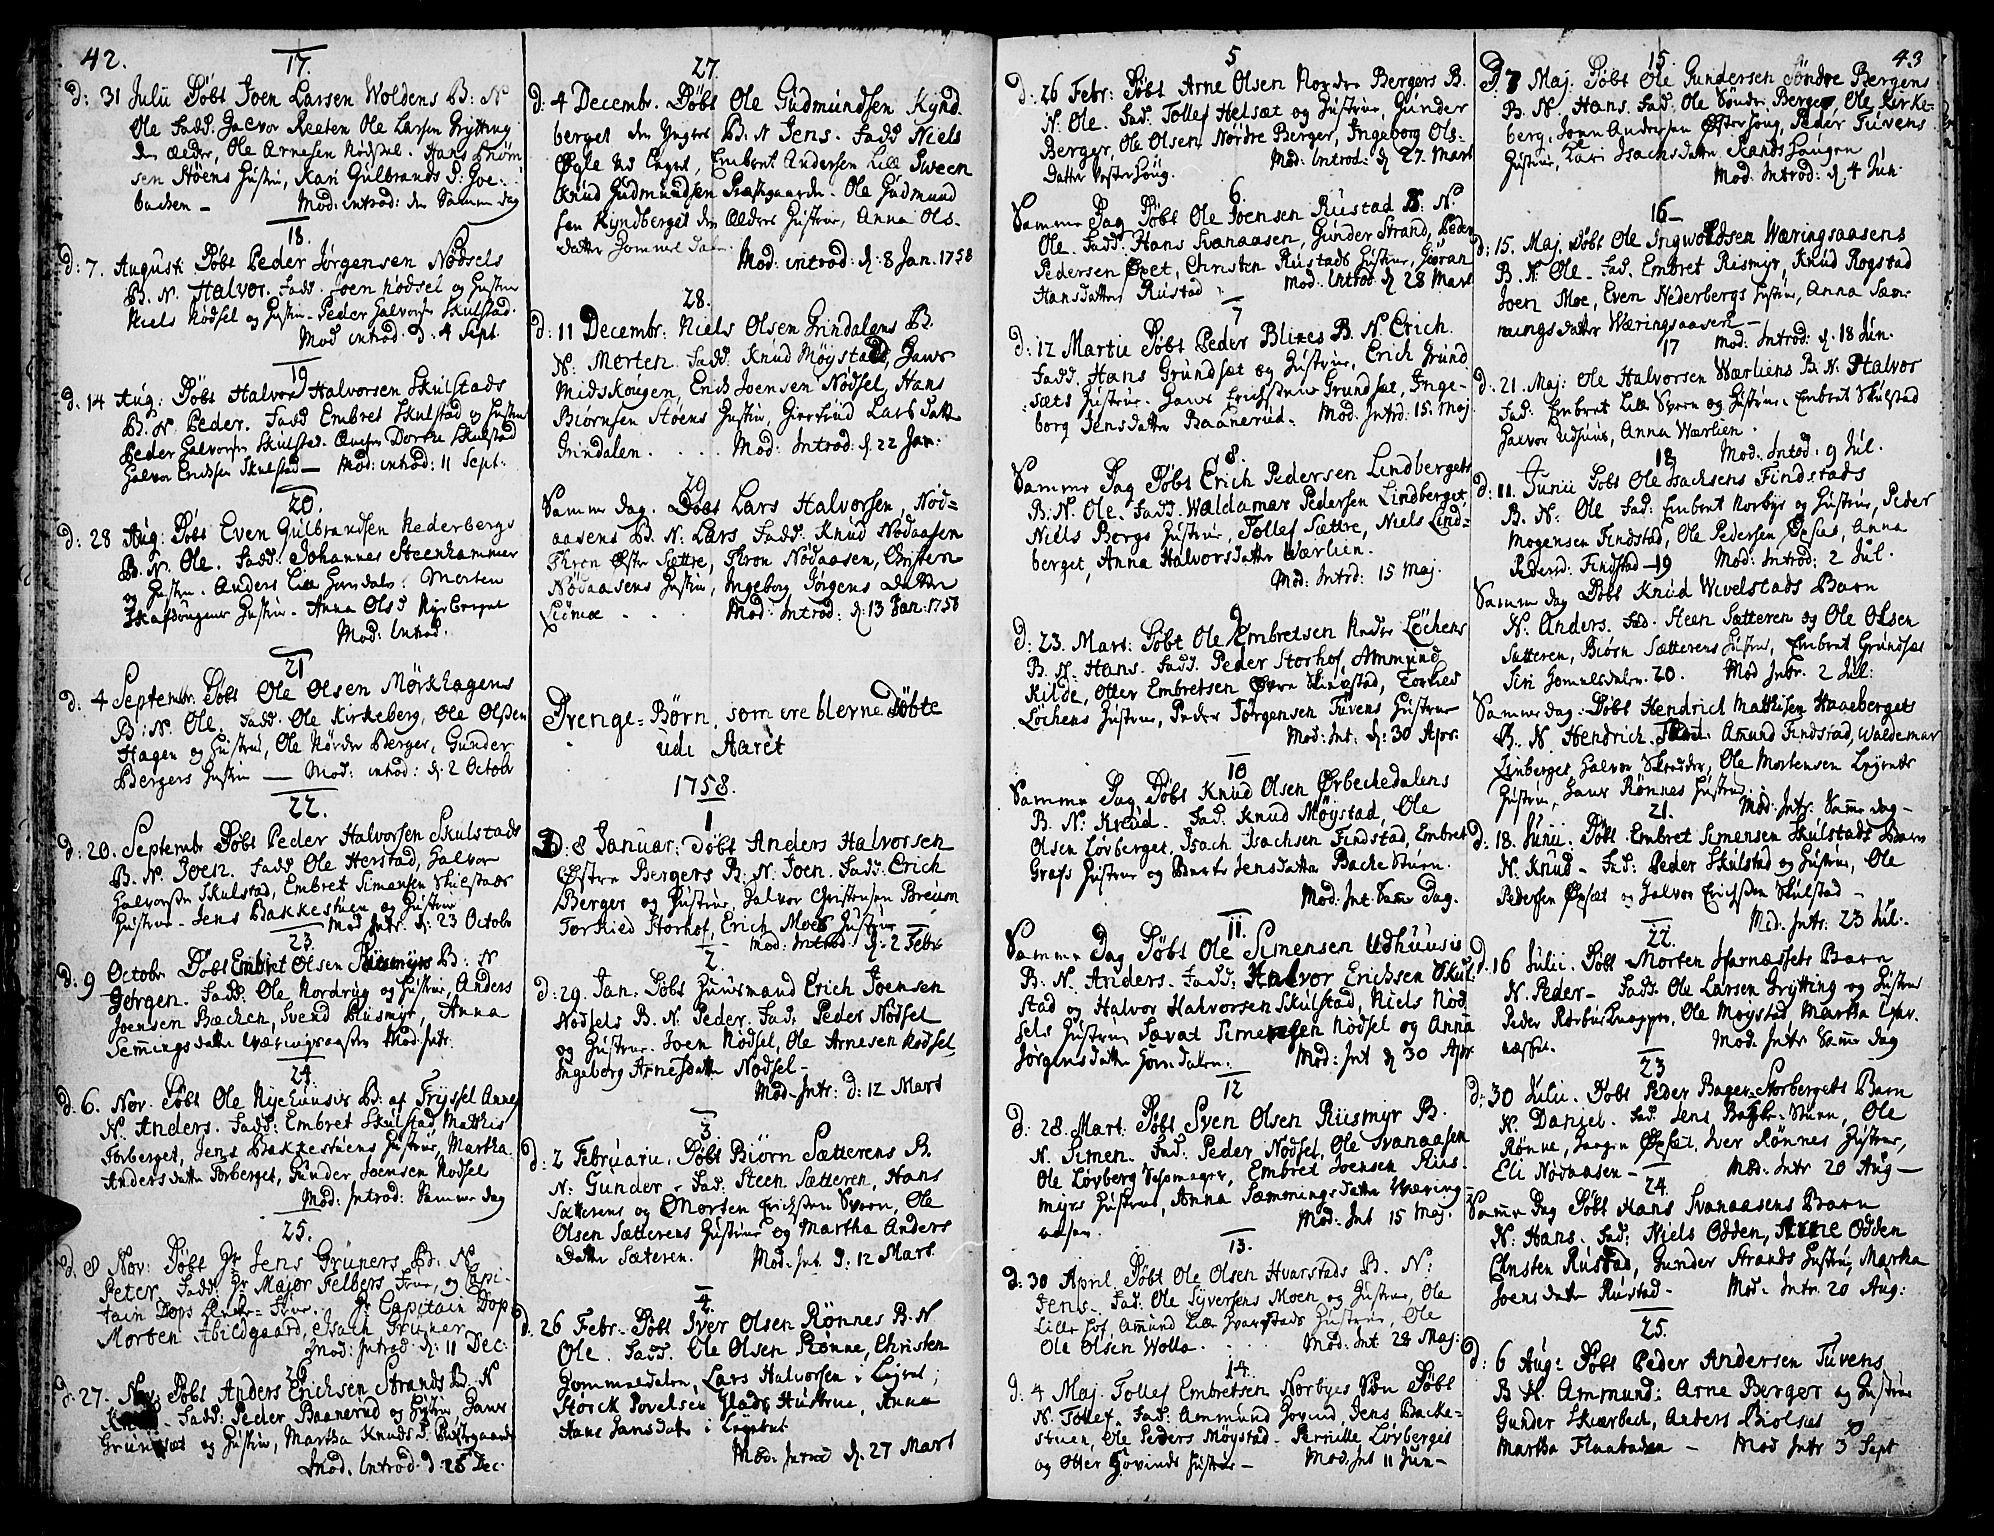 42.
17.
d: 31 Julii Döbt Joen Larsen Woldens B: N
Ole Fadd. Halvor Reeten Ole Larsen Grytting
den Ælder, Ole Arnesen Nödsel. Hans Biörn
sen Stöens Hustru, Kari Gulbrands D:
Mod: introd: den Samme dag
18.
d: 7. Augusti Döbt Peder Jörgensen Nödsels
B. N. Halvor. Fadd. Joen Nödsel og Hustru
Niels Nödsel og Hustru Peder Halvorsen Skulstad.
Mod introd: d: 4 Sept.
19
d: 14 Aug: Döbt Halvor Halvorsen Skulstads
B. N. Peder. Fadd Embret Skulstad og Hustru
Peder Halvorsen Skulstad. Dorthe Skulstad
Halvor Erichsen Skulstad — Mod: introd: 11 Sept:
20.
d: 28 Aug: Döbt Even Gulbrandsen Nederbergs
B. N. Ole. Fadd: Johannes Steenhammer
og Hustru. Anders Lille Morten
Hustru. Anna Ols D
Mod: Introd.
21
d: 4 Septembr: Döbt Ole Olsen Mörkhagens
B: N. Ole. Fadd. Ole Kirkeberg, Ole Olsen
Hagen og Hustru, Ole Nördre Berger, Gunder
Bergers Hustru — Mod: introd: d: 2 Octobr
22.
d: 20. Septembr Döbt Peder Halvorsen Skulstads
B. N. Joen. Fadd Ole Herstad, Halvor
Halvorsen Skulstad, Embret Simensen Skulstads
Hustru. Jens Bakkestuen og Hustru
Mod Intr. d: 23 Octobr
23.
d: 9 Octobr Döbt Embret Olsen B: N
Jörgen. Fadd: Ole Nordrug og Hustru, Anders
Joensen Bæcken, Svend Riismyr, Anna
Semmings datter Wæringsaasen Mod: Intr.
24.
d: 6. Nov. Döbt Ole Nyehuusis B: af Tryssel
N. Anders. Fadd: Embret Skulstad, Mathis
Torberget, Jens Bakkestuens Hustru, Martha
Anders datter Torberget, Gunder Joensen Nödsel
Mod: Introd: Samme dag
25.
d. 8 Nov: Döbt Hr Jens Gruners B: N
Peter. Fadd: Hr Major Felbers Frue, og Capi-
tain Dops Frue. Hr Capitain Dop
Morten Abildgaard, Isach Gruner
Mod: Introd d: 11 Dec:
26
d: 27. Nov: Döbt Anders Erichsen Strands B. N
Fadd: Peder Baanerud og Hustru Hans
Grundset og Hustru, Martha Knuds D.
Mod. Introd d. 26 Dec.
27.
d: 4 Decembr. Döbt Ole Gudmundsen Kynd
berget den Yngres B. N Jens. Fadd Niels
Embret Andersen Lille Sween
Knud Gudmundsen Præstgaarden. Ole Gudmund
sen Kyndberget den Ældres Hustrue, Anna Ols-
datter
Mod: introd: d: 8 Jan. 1758
28.
d: 11 Decembr: Niels Olsen Grindalens B.
N: Morten. Fadd: Knud Möystad, Hans
Midskougen, Erich Joensen Nödsel, Hans
Biörnsen Stöens Hustru, Giertrud Lars datter
Grindalen. . . . Mod: Introd: d: 22 Jan:
29
Samme dag. Döbt Lars Halvorsen, Nöd=
aasens B. N: Lars Fadd. Knud Nödaasen
Thron Öster Sættre, Thron Nödaasen, Christen
Nödaasens Hustru, Ingeborg Jörgens datter
. . Mod: introd: d: 13 Jan: 1758
Drenge-Börn, som ere blevne Döbte
udi Aaret
1758.
1
D: 8 Januar: Döbt Anders Halvorsen
Östre Bergers B: N: Joen. Fadd. Erich
Berger og Hustrue, Halvor Christensen
Torkied Storhof, Erich Moes Hustrue
Mod: Introd: d: 2 Febr
2
d: 29. Jan. Döbt Huusmand Erich Joensen
Nödsels B. N: Peder. Fad: Peder Nödsel
og Hustrue Joen Nödsel, Ole Arnesen Nödsel,
Ingeborg Arnesdatter Nödsel —
Mod. Intr: d: 12 Mart
3
d: 2 Februarii. Döbt Biörn Sætterens B.
N: Gunder - Fad: Steen Sætteren, Hans
Sætterens og Morten Erichsen Sveen, Ole
Olsen Sætterens Hustrue og Martha Anders
datter Sæteren. Mod: Int. d: 12 Mart.
4
d. 26 Febr. Döbt Iver Olsen Rönnes B. N
Ole. Fadd. Ole Olsen Rönne, Christen
Gommeldalen, Lars Halvorsen i Leyret;
Storck Povelsen Glads Hustrue, Anna
Hans datter i Leyret.
Mod: Introd d: 27 Mart
5
d: 26 Febr: Döbt Arne Olsen Nordre Bergers B.
N. Ole. Fad. Tollef Helset og Hustrue, Gunder
Berger, Ole Olsen Nordre Berger, Ingeborg Ols-
datter Vester Houg. Mod: Introd: d: 27. Mart
6
Samme Dag Döbt Ole Joensen Rustad B. N.
Ole. Fadd. Hans Svanaasen, Gunder Strand, Peder
Pedersen Öxet, Christen Rustads Hustrue, Göran
Hansdatter Rustad - Mod: Introd d: 28 Mart
7
d: 12 Martii Döbt Peder Blixes B. N. Erich.
Fadd. Hans Grundset og Hustrue, Erich Grund
sets Hustrue. Hans Erichsens Grundset, Inge-
borg Jensdatter Baanerud. Mod. Introd. 15. Maj
8.
Samme Dag Döbt Erich Pedersen Lindbergets
B. N. Ole. Fadd. Waldemar Pedersen Lindberget,
Niels Borgs Hustrue, Tollef Sættre, Niels Lind=
berget, Anna Halvorsdatter Wærlien.
Mod: Introd: 15 Maj.
9
d: 23. Mart: Döbt Ole Embretsen Neder Löchens
B. N. Hans. Fadd. Peder Storhof Ammund
Kilde, Otter Embretsen Torkied
Löchens Hustrue, Peder Jörgensen Tuvens Hustrue
Mod: Int. d: 30 Apr:
10
Samme Dag Döbt Knud Olsen Örbeckedalens
B. N: Knud. Fad. Knud Möystad, Ole
Olsen Lövberget, Isach Isachsen Findstad, Embret
Grafs Hustrue og Berte Jensdatter Bache Stuen.
Mod. Int. Samme Dag.
11.
Samme Dag Döbt Ole Simensen Udhuusis
B. N. Anders. Fadd: Halvor Erichsen Skul
stad og Halvor Halvorsen Skulstad, Niels Nöd
sels Hustrue Simensen Nödsel og Anna
Jörgensdatter Mod: Int d 30 Apr
12
d: 28. Mart. Döbt Sven Olsen Riismyr B.
N. Simen. Fad: Peder Nödsel, Ole Svanaasen
Ole Lövberg Embret Joensen Riis-
myrs Hustrue, Anna Sæmmingsdatter Wæring-
aasen. Mod: Int 15 Maj.
13.
d: 30 April Döbt Ole Olsen Hvarstads B. N:
Jens. Fad: Ole Syversens Moen og Hustrue, Ole
Lille Hof Amund Lille Hvarstads Hustrue, Ole
Ole Olsen Wolla. . . . Mod: Int 28 Maj:
14.
d. 4 Maj. Tollef Embretsen Norbyes Sön Döbt
N. Tollef. Fad: Ammund Govind, Jens Backe-
stuen, Ole Peders Möystad. Pernille Lövbergs
og Otter Govinds Hustrue — Mod: Int 11 Jun-
43
15.
D. 7 Maj. Döbt Ole Gundersen Söndre Bergens
B. N. Hans. Fad. Ole Söndr. Berger, Ole Kirke=
berg, Joen Andersen Öster Houg, Peder Tuvens
Hustrue, Kari Isachsdatter
Mod. Introd: d. 4 Jun:
16
d: 15. Maj. Döbt Ole Ingwoldsen Wæringsaasens
B. N. Ole. Fad. Embret Riismyr, Knud Rogstad
Joen Moe, Even Nederbergs Hustrue, Anna Sæm
mingsdatter Wæringsaasen —
Mod: Introd: d. 18 Jun.
17
d. 21. Maj: Ole Halvorsen Wærliens B. N. Halvor
Fad: Embret Lille Sveen og Hustrue. Embret Skulstad
Halvor Udhuus, Anna Wærlien.
Mod: Introd. 9 Jul.
18
d: 11. Junii Döbt Ole Isachsens Findstads
B. N: Ole Fad: Embret Norbye og Hustrue, Peder
Mogensen Findstad, Ole Pedersen Opsæt, Anna
Pedersd: Findstad — Mod: Introd: 2 Jul.
19
Samme dag Döbt Knud Wivelstads Barn
N: Anders. Fad. Steen Sætteren og Ole Olsen
Sætteren, Biörn Sætterens Hustrue, Embret Grundset
Siri Mod Intr. 2 Jul:
20.
Samme dag: Döbt Hendrich Mathisen Haaebergets
B. N. Hendrich. Fad: Amund Findstad, Waldemar
Linberget, Halvor Skredder, Ole Mortensen
Hustrue, Hans Rönnes Hustrue
Mod: Intr. Samme dag —
21.
d. 18. Junii. Döbt Embret Simensen Skulstads Barn
N. Knud - Fad: Peder Skulstad og Hustrue, Ole
Pedersen Opsæt og Halvor Erichsen Skulstad —
Mod. Intr. 23 Jul.
22.
d. 16 Julii. Döbt Morten Harnæssets Barn
N. Peder - Fadd: Ole Larsen Grytting og Hustrue
Peder Ole Moystad Martha
Mod. Intr Samme dag
23
d: 30 Julii. Döbt Peder Bager-Storbergets Barn
N. Daniel. Fad. Jens Bache-stuen, Ole
Rönne, Iver Rönnes Hustrue,
Eli Nödaasen — Mod: Intr 20 Aug —
24.
Samme Dag Döbt Hans Svanaasens Barn
N: Hans. Fad: Niels Odden, Arne Odden
Christen Rustad, Gunder Strands Hustru, Martha
Joensdatter Rustad. Mod. Intr. 20 Aug:
25.
d: 6 Aug: Döbt Peder Andersen Tuvens
B N. Ammund: Arne Berger og Hustrue
Gunder Skiærbech, Anders
Martha — Mod Intr 3 Sept